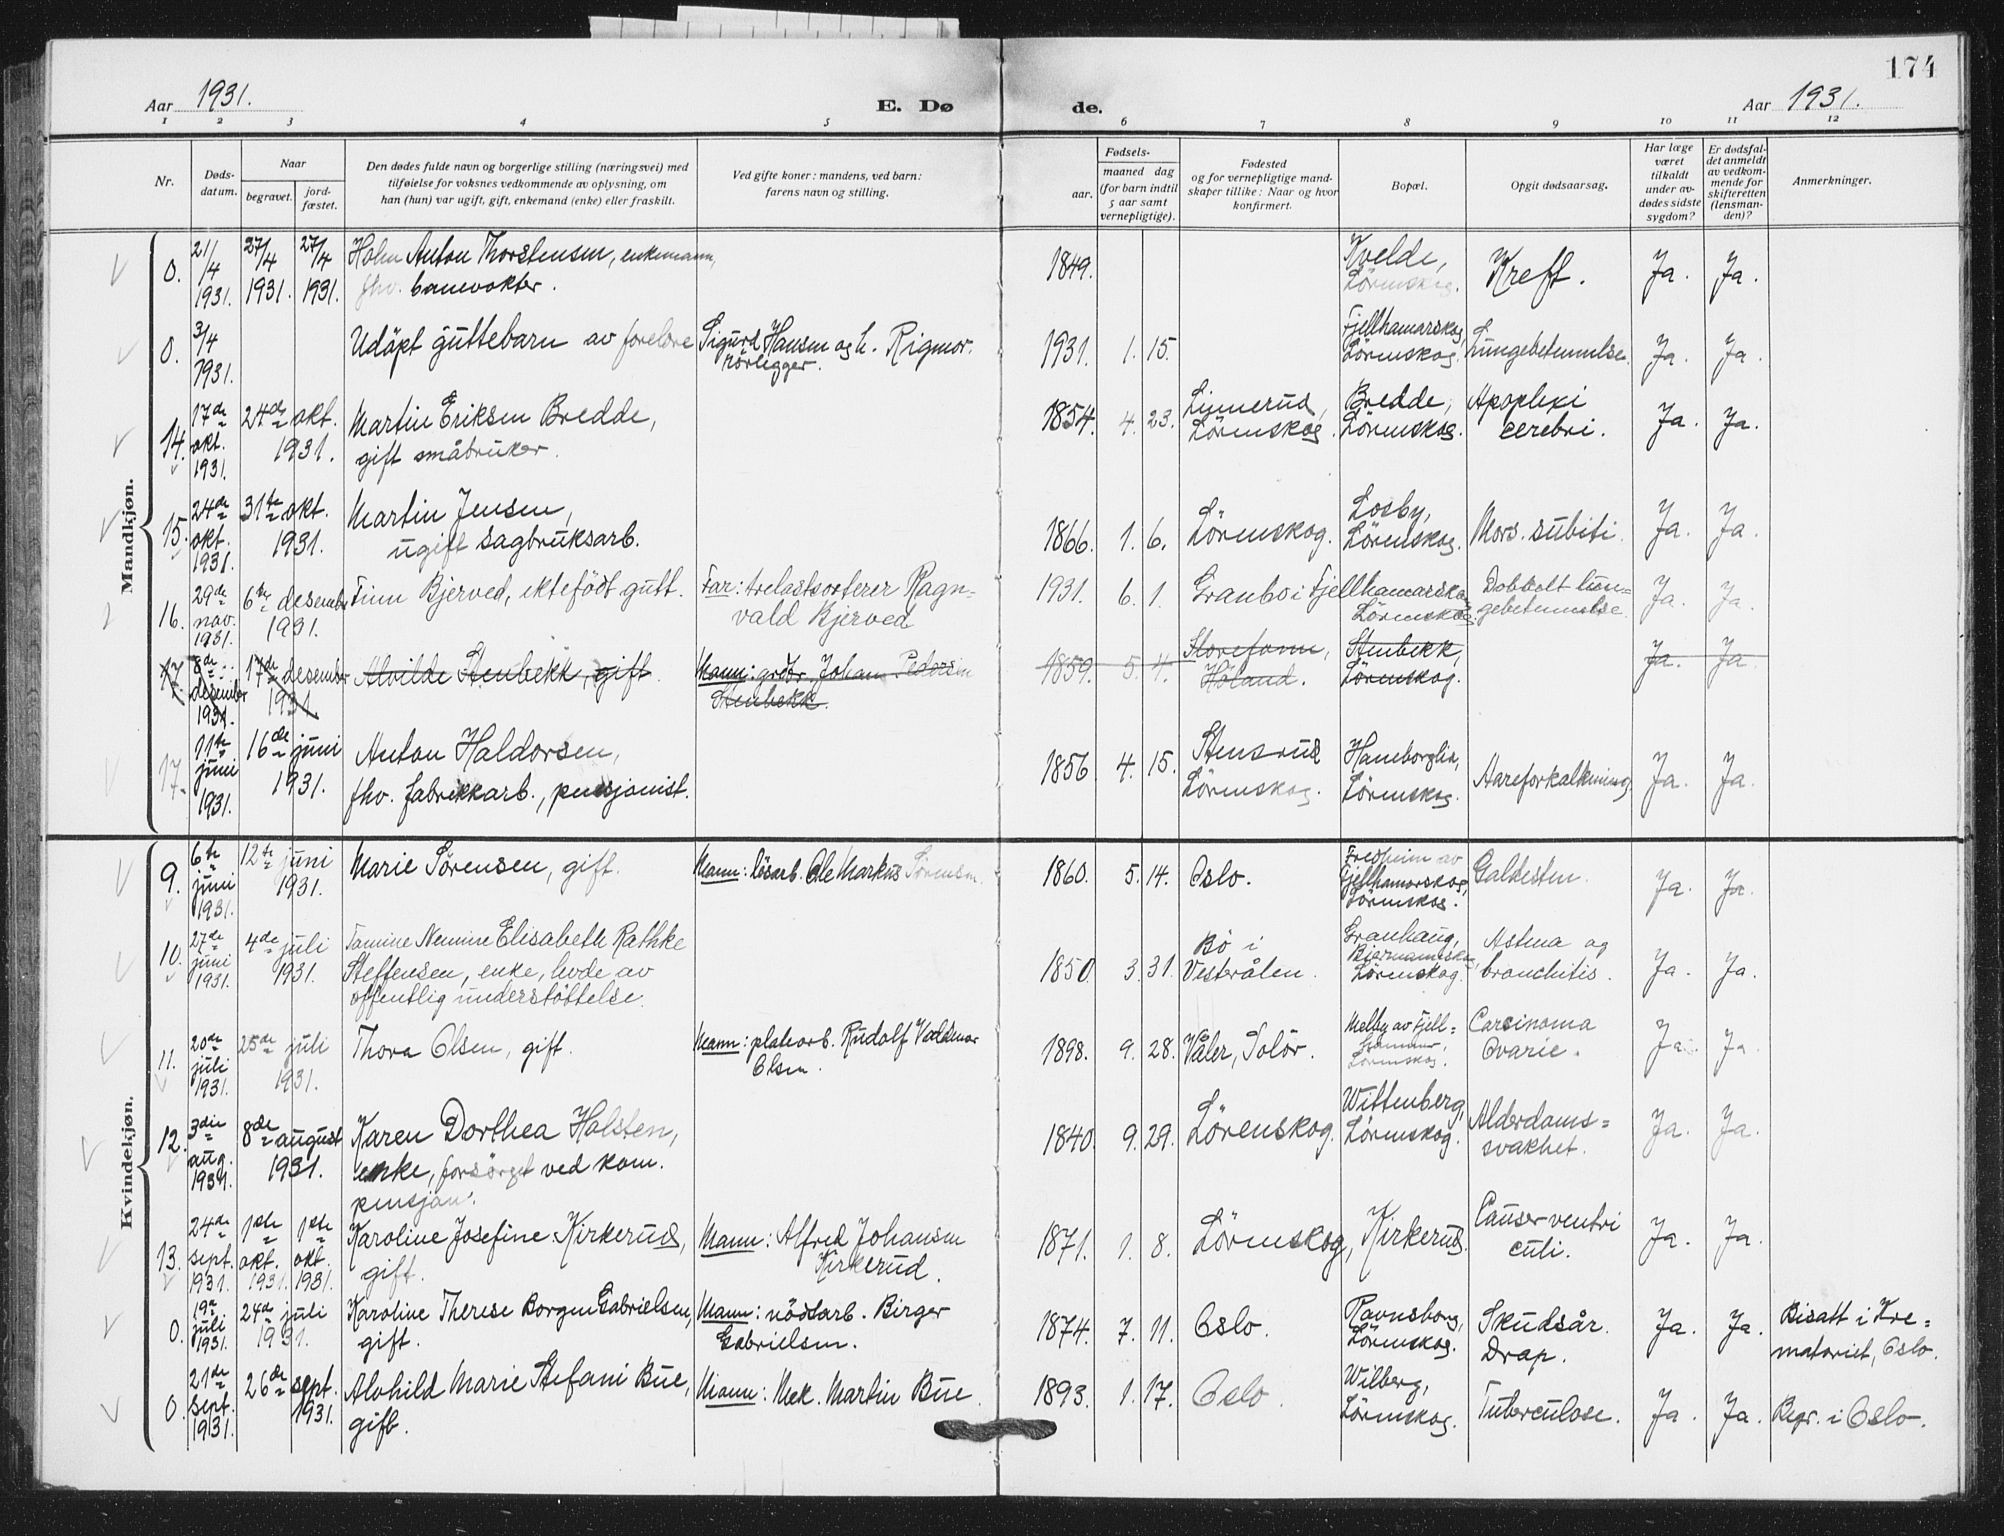 174
Aar 1931.
E. Dø de.
Aar 1931.
1 2 3 4 5 6 7 8 9 10 11 12
Nr.
Døds-
datum.
Naar
begravet.
jord-
fæstet.
Den dødes fulde navn og borgerlige stilling (næringsvei) med
tilføielse for voksnes vedkommende av oplysning, om
han (hun) var ugift, gift, enkemand (enke) eller fraskilt.
Ved gifte koner: mandens, ved barn:
farens navn og stilling.
Fødsels-
aar.
maaned dag
(for barn indtil
5 aar samt
vernepligtige).
Fødested
og for vernepligtige mand-
skaper tillike: Naar og hvor
konfirmert.
Bopæl.
Opgit dødsaarsag.
Har læge
været
tilkaldt
under av-
dødes sidste
sygdom?
Er dødsfal-
det anmeldt
av vedkom-
mende for
skifteretten
(lensman-
den)?
Anmerkninger.
Mandkjøn.
0. 21/4 1931. 27/4 1931. 27/4 1931. Anton Thorstensen, enkemann, fhv. banevokter. 1849. Kvelde, Lörenskog. Kreft. Ja. Ja.
0. 3/4 1931. Udöpt guttebarn av foreldre Sigurd Hansen og h. Rigmor. rörlegger. 1931. 1. 15. Fjellhamarskog, Lörenskog. Lungebetennelse. Ja. Ja.
14. 17de okt. 1931. 24de okt. 1931. Martin Eriksen Bredde, gift småbruker. 1854. 4. 23. Linnerud, Lörenskog. Bredde, Lörenskog. Apoplexi cerebri. Ja. Ja.
15. 24de okt. 1931. 31te okt. 1931. Martin Jensen, ugift sagbruksarb. 1866. 1. 6. Lörenskog. Losby, Lörenskog. Mors subiti. Ja. Ja.
16. 29de nov. 1931. 6te desember 1931. Finn Bjerved, ektefödt gutt. Far: trelastsorterer Ragn-
vald Bjerved 1931. 6. 1. Granbo i Fjellhamarskog Lörenskog. Dobbelt lun-
gebetennelse. Ja. Ja.
17. 8de desember 1931. 17de desember 1931. Alvilde Stenbekk, gift. Mann: Johan Pedersen Stenbekk. 1859. 5. 4. Höland. Stenbekk, Lörenskog. Ja. Ja.
17. 11te juni 1931. 16de juni 1931. Anton Haldorsen, fhv. fabrikkarb., pensjonist. 1856 4. 15. Stensrud Lörenskog. Haneborglia, Lörenskog. Aareforkalkning Ja. Ja.
Kvindekjøn.
9. 6te juni 1931. 12te juni 1931. Marie Sörensen, gift. Mann: lösarb. Ole Markus Sörensen. 1860. 5. 14. Oslo. Fredheim av Fjellhamarskog, Lörenskog. Galdesten. Ja. Ja.
10. 27de juni 1931. 4de juli 1931. Elisabeth Rathke Steffensen, enke, levde av offentlig understöttelse. 1850. 3. 31. Bö i Vesterålen. Granhaug, Lörenskog. Astma og bronchitis. Ja. Ja.
11. 20de juli 1931. 25de juli 1931. Thora Olsen, gift. Mann: platearb. Rudolf Valdemar Olsen. 1898. 9. 28. Våler, Solör. Melby av Fjell-
hammer, Lörenskog. Carcinoma Ovarie. Ja. Ja.
12. 3die aug. 1931. 8de august 1931. Karen Dorthea Holsten, enke, forsörget ved kom. pensjon. 1840. 9. 29. Lörenskog. Wittenberg, Lörenskog. Alderdoms-
svakhet. Ja. Ja.
13. 24de sept. 1931. 1ste okt. 1931. 1ste okt. 1931. Karoline Josefine Kirkerud, gift. Mann: Alfred Johansen Kirkerud. 1871. 1. 8. Lörenskog, Kirkerud. Cancer ventri
culi. Ja. Ja.
0. 19de juli 1931. 24de juli 1931. Karoline Therese Borgen Gabrielsen, gift. Mann: nödsarb. Birger Gabrielsen. 1874. 7. 11. Oslo. Ravnsborg, Lörenskog. Skudsår. Drap. Ja. Ja. Bisatt i Kre-
matoriet, Oslo.
0. 21de sept. 1931. 26de sept. 1931. Alvhild Marie Stefani Bue, gift. Mann: Mek. Martin Bue 1893. 1. 17. Oslo. Wilberg, Lörenskog. Tuberculose. Ja. Ja. Begr. i Oslo.